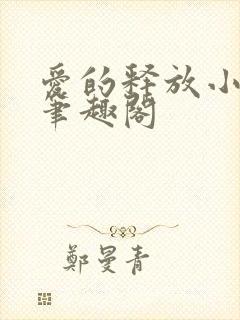 愛的释放小
筆趣閣
鄭曼青